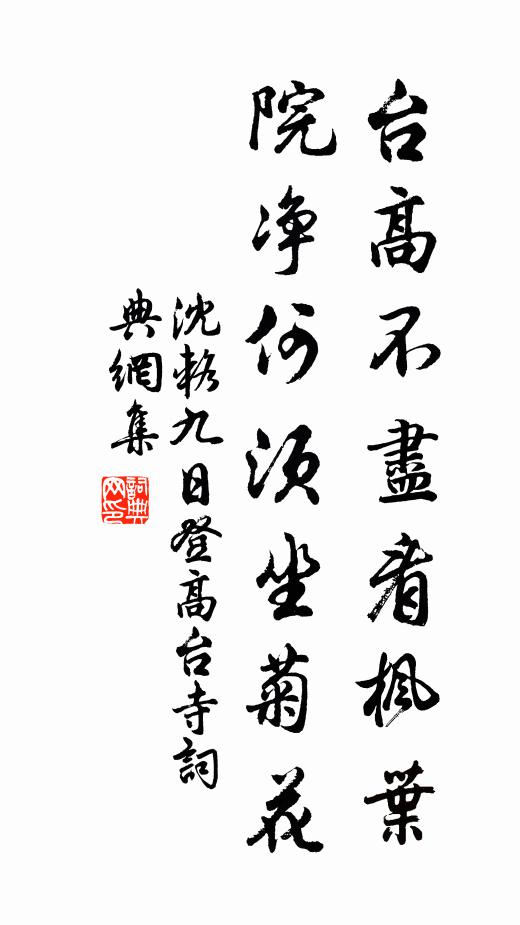 台高不盡看楓葉
院净何須坐菊花
沈彬九日登高台寺詞
典網集
詞典網印